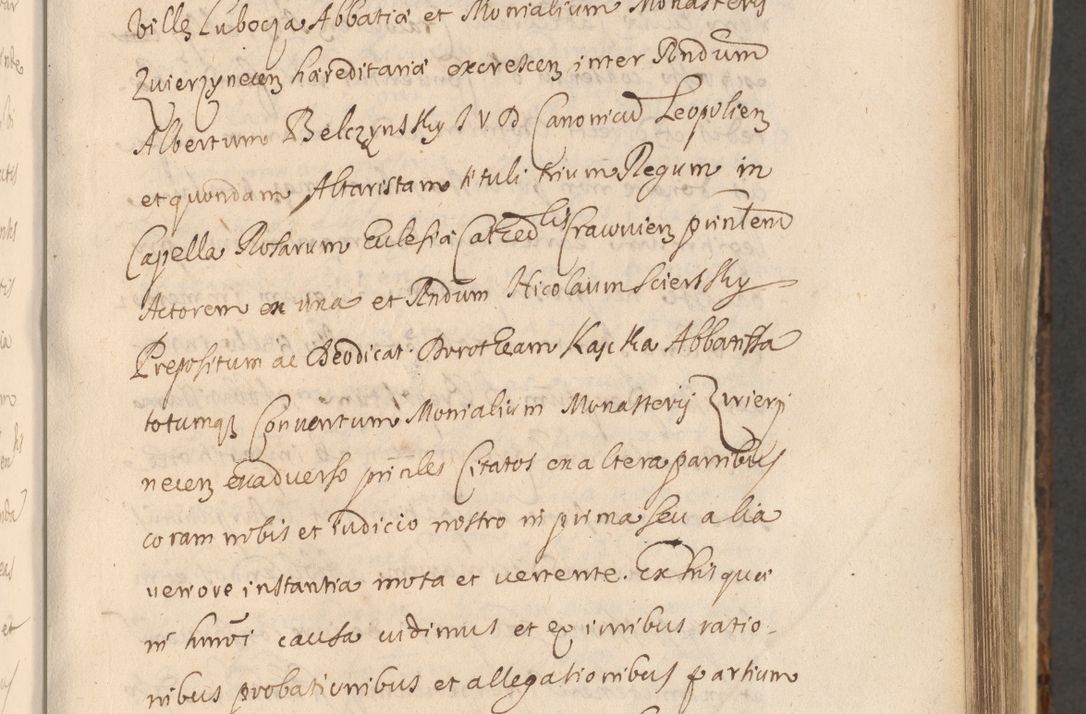 Villę Lubocza Abbatiæ et Monialium Monasterij
Zwierzynecen hæreditariæ excrescen inter Rndum
Albertum Belczynsky I V D Canonicum Leopolien
et quondam Altaristam tituli trium Regum in
Capella Rosarum Eclesiæ Cathedlis Cracovien prntem
Actorem ex una et Rndum Nicolaum Sciersky
Prepositum ac Deodicat. Dorotheam Kącka Abbatissa
totumq Conventum Monialium Monasterij Zwierzy
necen exadverso prnciles Citatos ex altera partibus
coram nobis et iudicio nostro in prima seu alia
veriore instantia mota et vertente. Ex his quæ
in hmoi causa vidimus et ex iuribus ratio-
nibus probationibus et allegationibus partium